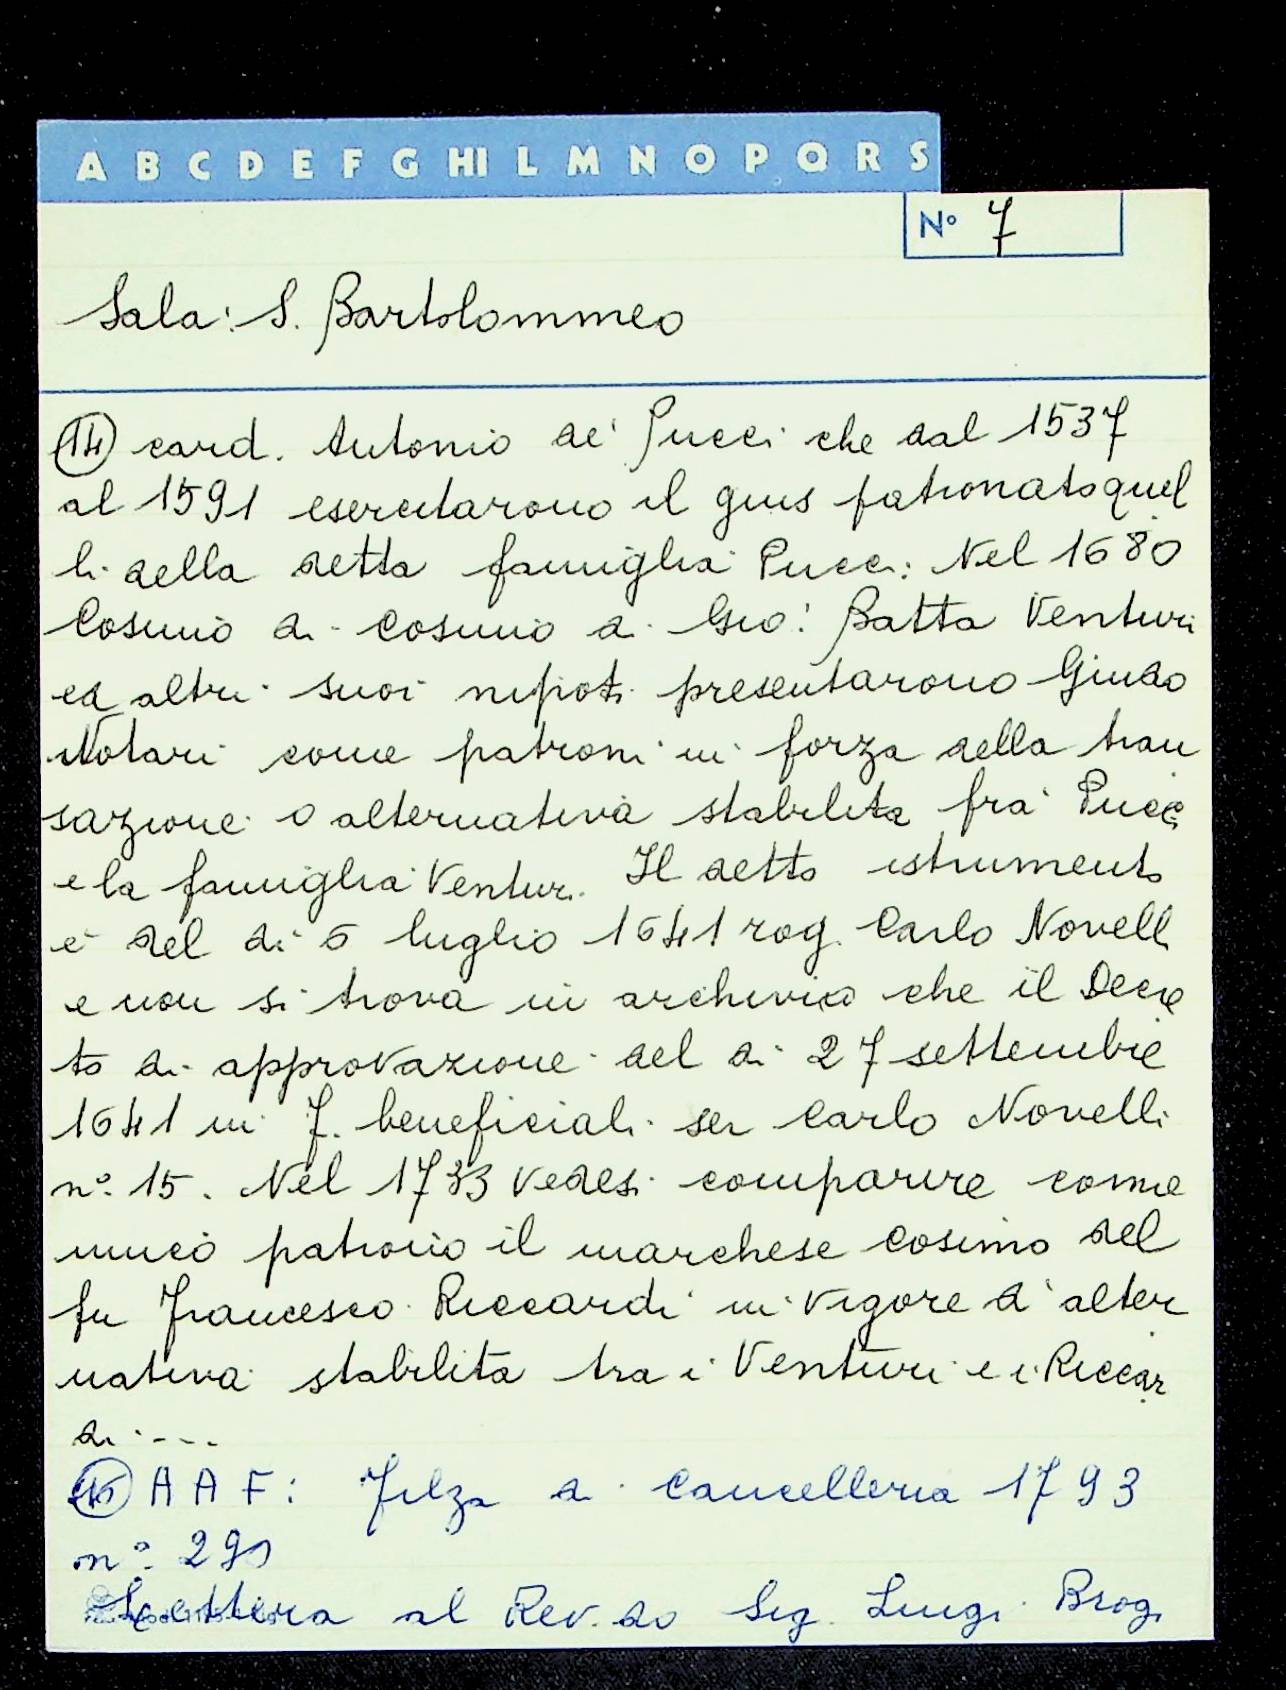 A B C D E F G HI L M N O P Q R S
Nº 7
Sala: S. Bartolommeo
(14) card. Antonio de' Pucci che dal 1537
al 1591 esercitarono il gius patronato quel
li della detta famiglia Pucci. Nel 1680
Cosimo di Cosimo di Gio: Batta Venturi
ed altri suoi nipoti presentarono Giudo
Notari come patroni in forza della tran
sazione o alternativa stabilita fra Pucci
e la famiglia Venturi. Il detto istrumento
è del di 6 luglio 1641 rog. Carlo Novelli
e non si trova in archivio che il Decre
to di approvazione del di 27 settembre
1641 in F. beneficiali ser Carlo Novelli
nº. 15. Nel 1733 vedesi comparire come
unico patrono il marchese Cosimo del
fu Francesco Riccardi in vigore d'alter
nativa stabilita tra i Venturi e i Riccar
di ----
(15) A A F: Filza di Cancelleria 1793
nº. 291
Lettera al Rev.do Sig. Luigi Brogi